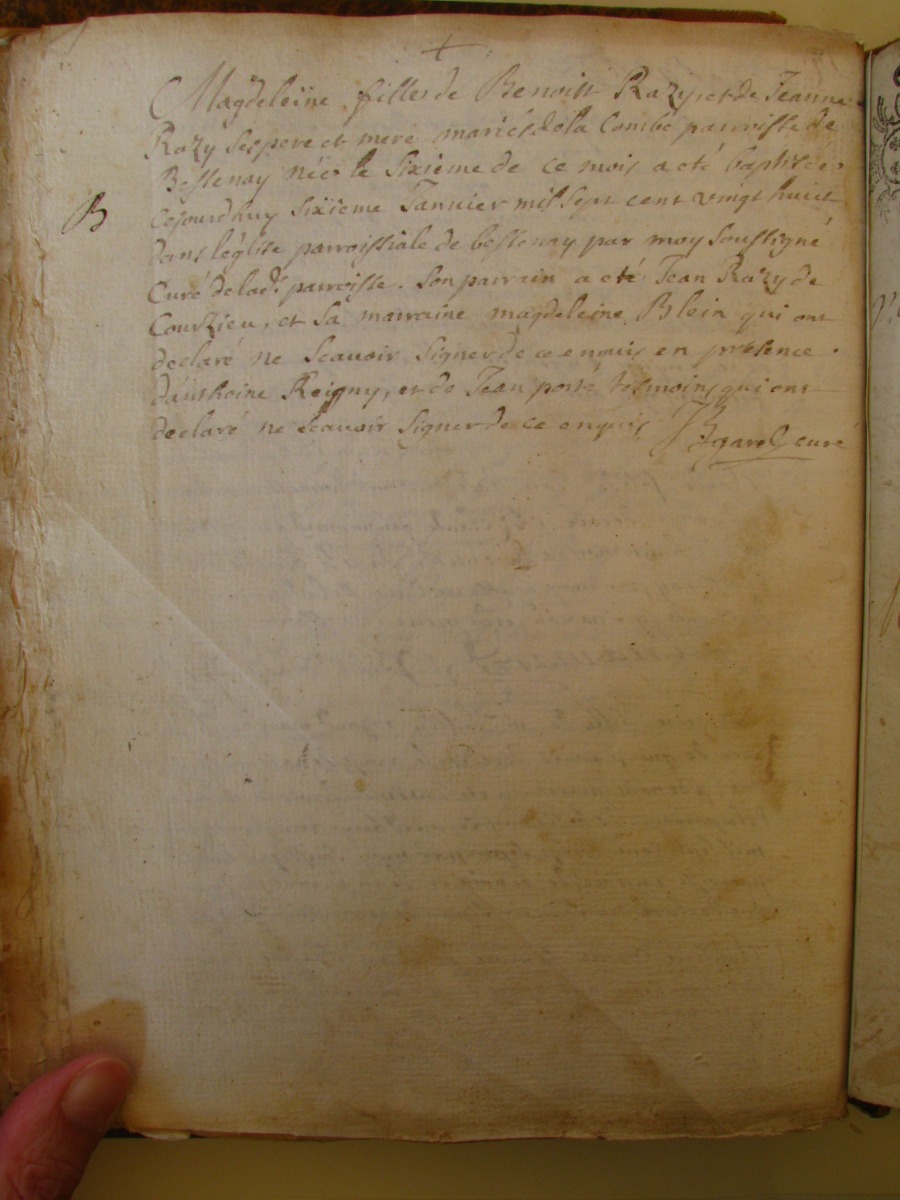 Magdeleine fille de Benoist Razy, et de Jeanne
Razy ses pere et mere mariés de la Combe parroisse de
Bessenay née le sixieme de ce mois a eté baptisée
B
cejourdhuy sixieme Janvier mil sept cent vingt huict
dans léglise parroissiale de bessenay par moy soussigné
Curé de lad. parroisse. Son parrain a eté Jean Razy de
Courzieu, et sa marraine magdeleine Blein qui ont
declaré ne scavoir signer de ce enquis en presence
dánthoine Reigny, et de Jean porte tesmoins qui ont
declaré ne scavoir signer de ce enquis
curé